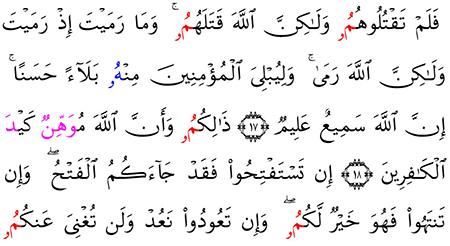 فَلَمْ تَقْتُلُوهُمُۥ وَلَٰكِنَّ ٱللَّهَ قَتَلَهُمُۥ ۚ وَمَا رَمَيْتَ إِذْ رَمَيْتَ
وَلَٰكِنَّ ٱللَّهَ رَمَىٰ ۚ وَلِيُبْلِىَ ٱلْمُؤْمِنِينَ مِنْهُۥ بَلَآءً حَسَنًا ۚ
إِنَّ ٱللَّهَ سَمِيعٌ عَلِيمٌ ﴿١٧﴾ ذَٰلِكُمُۥ وَأَنَّ ٱللَّهَ مُوَهِّنٌ كَيْدَ
ٱلْكَٰفِرِينَ ﴿١٨﴾ إِن تَسْتَفْتِحُوا۟ فَقَدْ جَآءَكُمُ ٱلْفَتْحُ ۖ وَإِن
تَنتَهُوا۟ فَهُوَ خَيْرٌ لَّكُمُۥ ۖ وَإِن تَعُودُوا۟ نَعُدْ وَلَن تُغْنِىَ عَنكُمُۥ